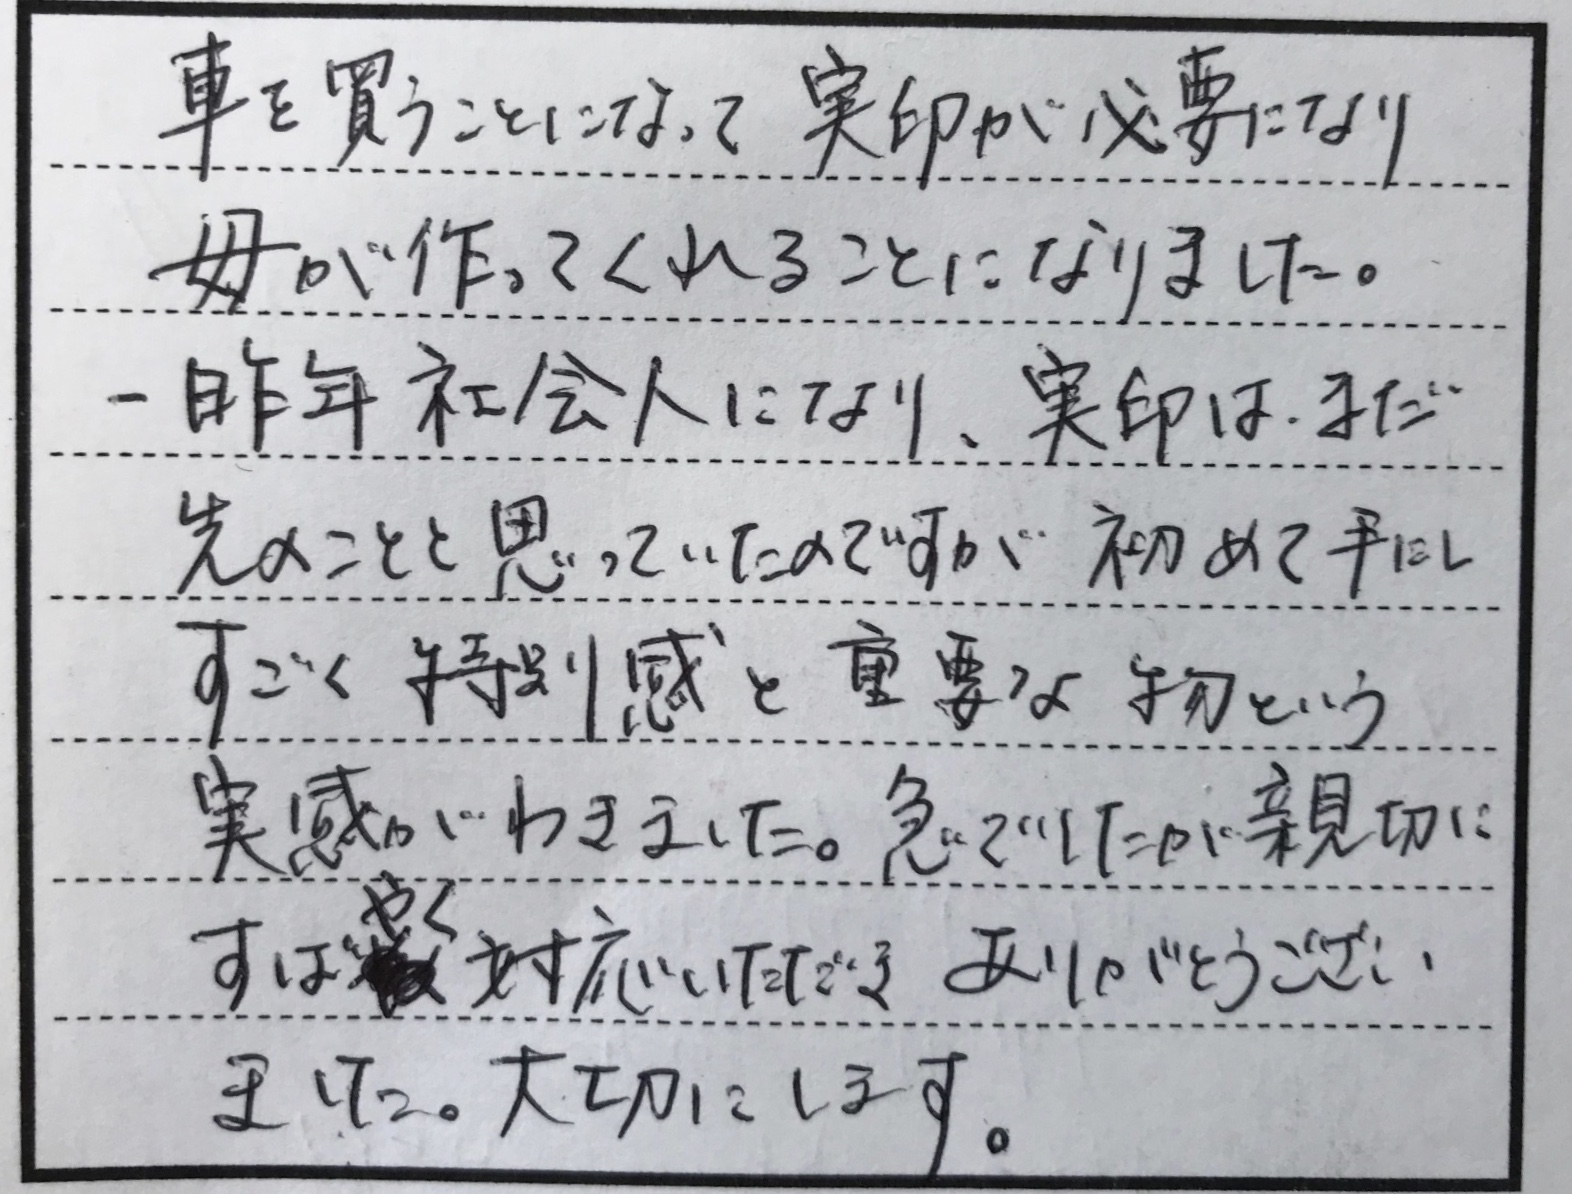 車を買うことになって 実印が必要になり
母が作ってくれることになりました。
一昨年社会人になり、実印は、まだ
先のことと思っていたのですが 初めて手にし
すごく 特別感と重要な物という
実感がわきました。急でしたが親切に
すばやく対応いただき ありがとうござい
ました。大切にします。